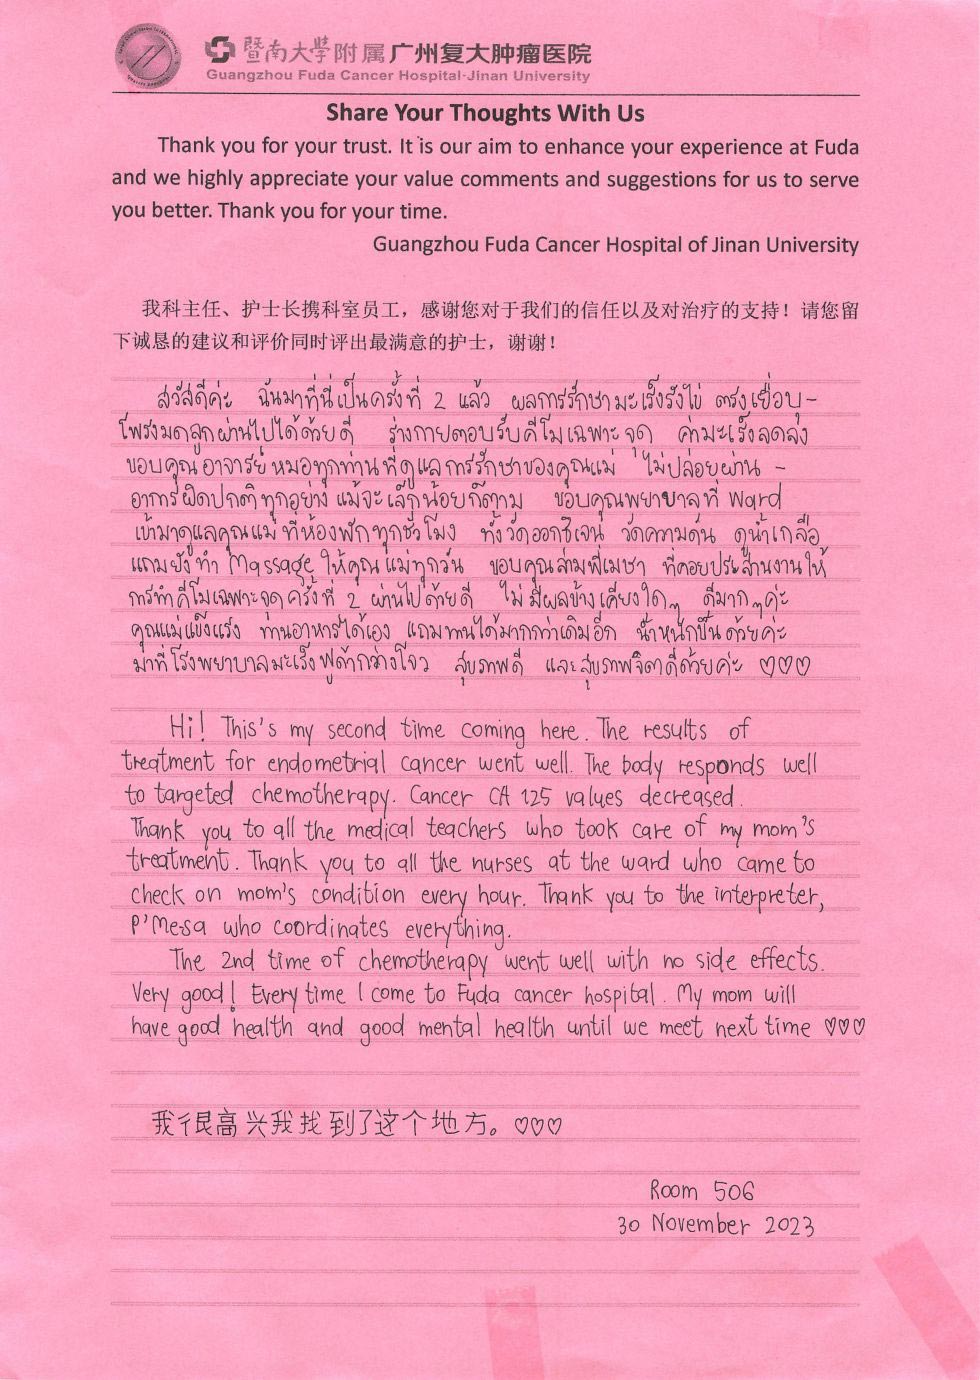 暨南大学附属广州复大肿瘤医院
Guangzhou Fuda Cancer Hospital·Jinan University
Share Your Thoughts With Us
Thank you for your trust. It is our aim to enhance your experience at Fuda
and we highly appreciate your value comments and suggestions for us to serve
you better. Thank you for your time.
Guangzhou Fuda Cancer Hospital of Jinan University
我科主任、护士长携科室员工，感谢您对于我们的信任以及对治疗的支持！请您留
下诚恳的建议和评价同时评出最满意的护士，谢谢！
สวัสดีค่ะ ฉันมาที่นี่เป็นครั้งที่ 2 แล้ว ผลการรักษามะเร็งรังไข่ ตรงเยื่อบุ-
โพรงมดลูกผ่านไปได้ด้วยดี ร่างกายตอบรับคีโมเฉพาะจุด ค่ามะเร็งลดลง
ขอบคุณอาจารย์หมอทุกท่านที่ดูแลการรักษาของคุณแม่ ไม่ปล่อยผ่าน -
อาการผิดปกติทุกอย่าง แม้จะเล็กน้อยก็ตาม ขอบคุณพยาบาลที่ Ward
เข้ามาดูแลคุณแม่ที่ห้องพักทุกชั่วโมง ทั้งวัดออกซิเจน วัดความดัน ดูน้ำเกลือ
แถมยังทำ Massage ให้คุณแม่ทุกวัน ขอบคุณล่ามพี่เมษา ที่คอยประสานงานให้
การทำคีโมเฉพาะจุดครั้งที่ 2 ผ่านไปด้วยดี ไม่มีผลข้างเคียงใดๆ ดีมากๆค่ะ
คุณแม่แข็งแรง ทานอาหารได้เอง แถมทานได้มากกว่าเดิมอีก น้ำหนักขึ้นด้วยค่ะ
มาที่โรงพยาบาลมะเร็งฟูด้ากว่างโจว สุขภาพดี และสุขภาพจิตดีด้วยค่ะ ♡♡♡
Hi! This's my second time coming here. The results of
treatment for endometrial cancer went well. The body responds well
to targeted chemotherapy. Cancer CA 125 values decreased.
Thank you to all the medical teachers who took care of my mom's
treatment. Thank you to all the nurses at the ward who came to
check on mom's condition every hour. Thank you to the interpreter,
P'Mesa who coordinates everything.
The 2nd time of chemotherapy went well with no side effects.
Very good! Every time I come to Fuda cancer hospital. My mom will
have good health and good mental health until we meet next time ♡♡♡
我很高兴我找到了这个地方。♡♡♡
Room 506
30 November 2023